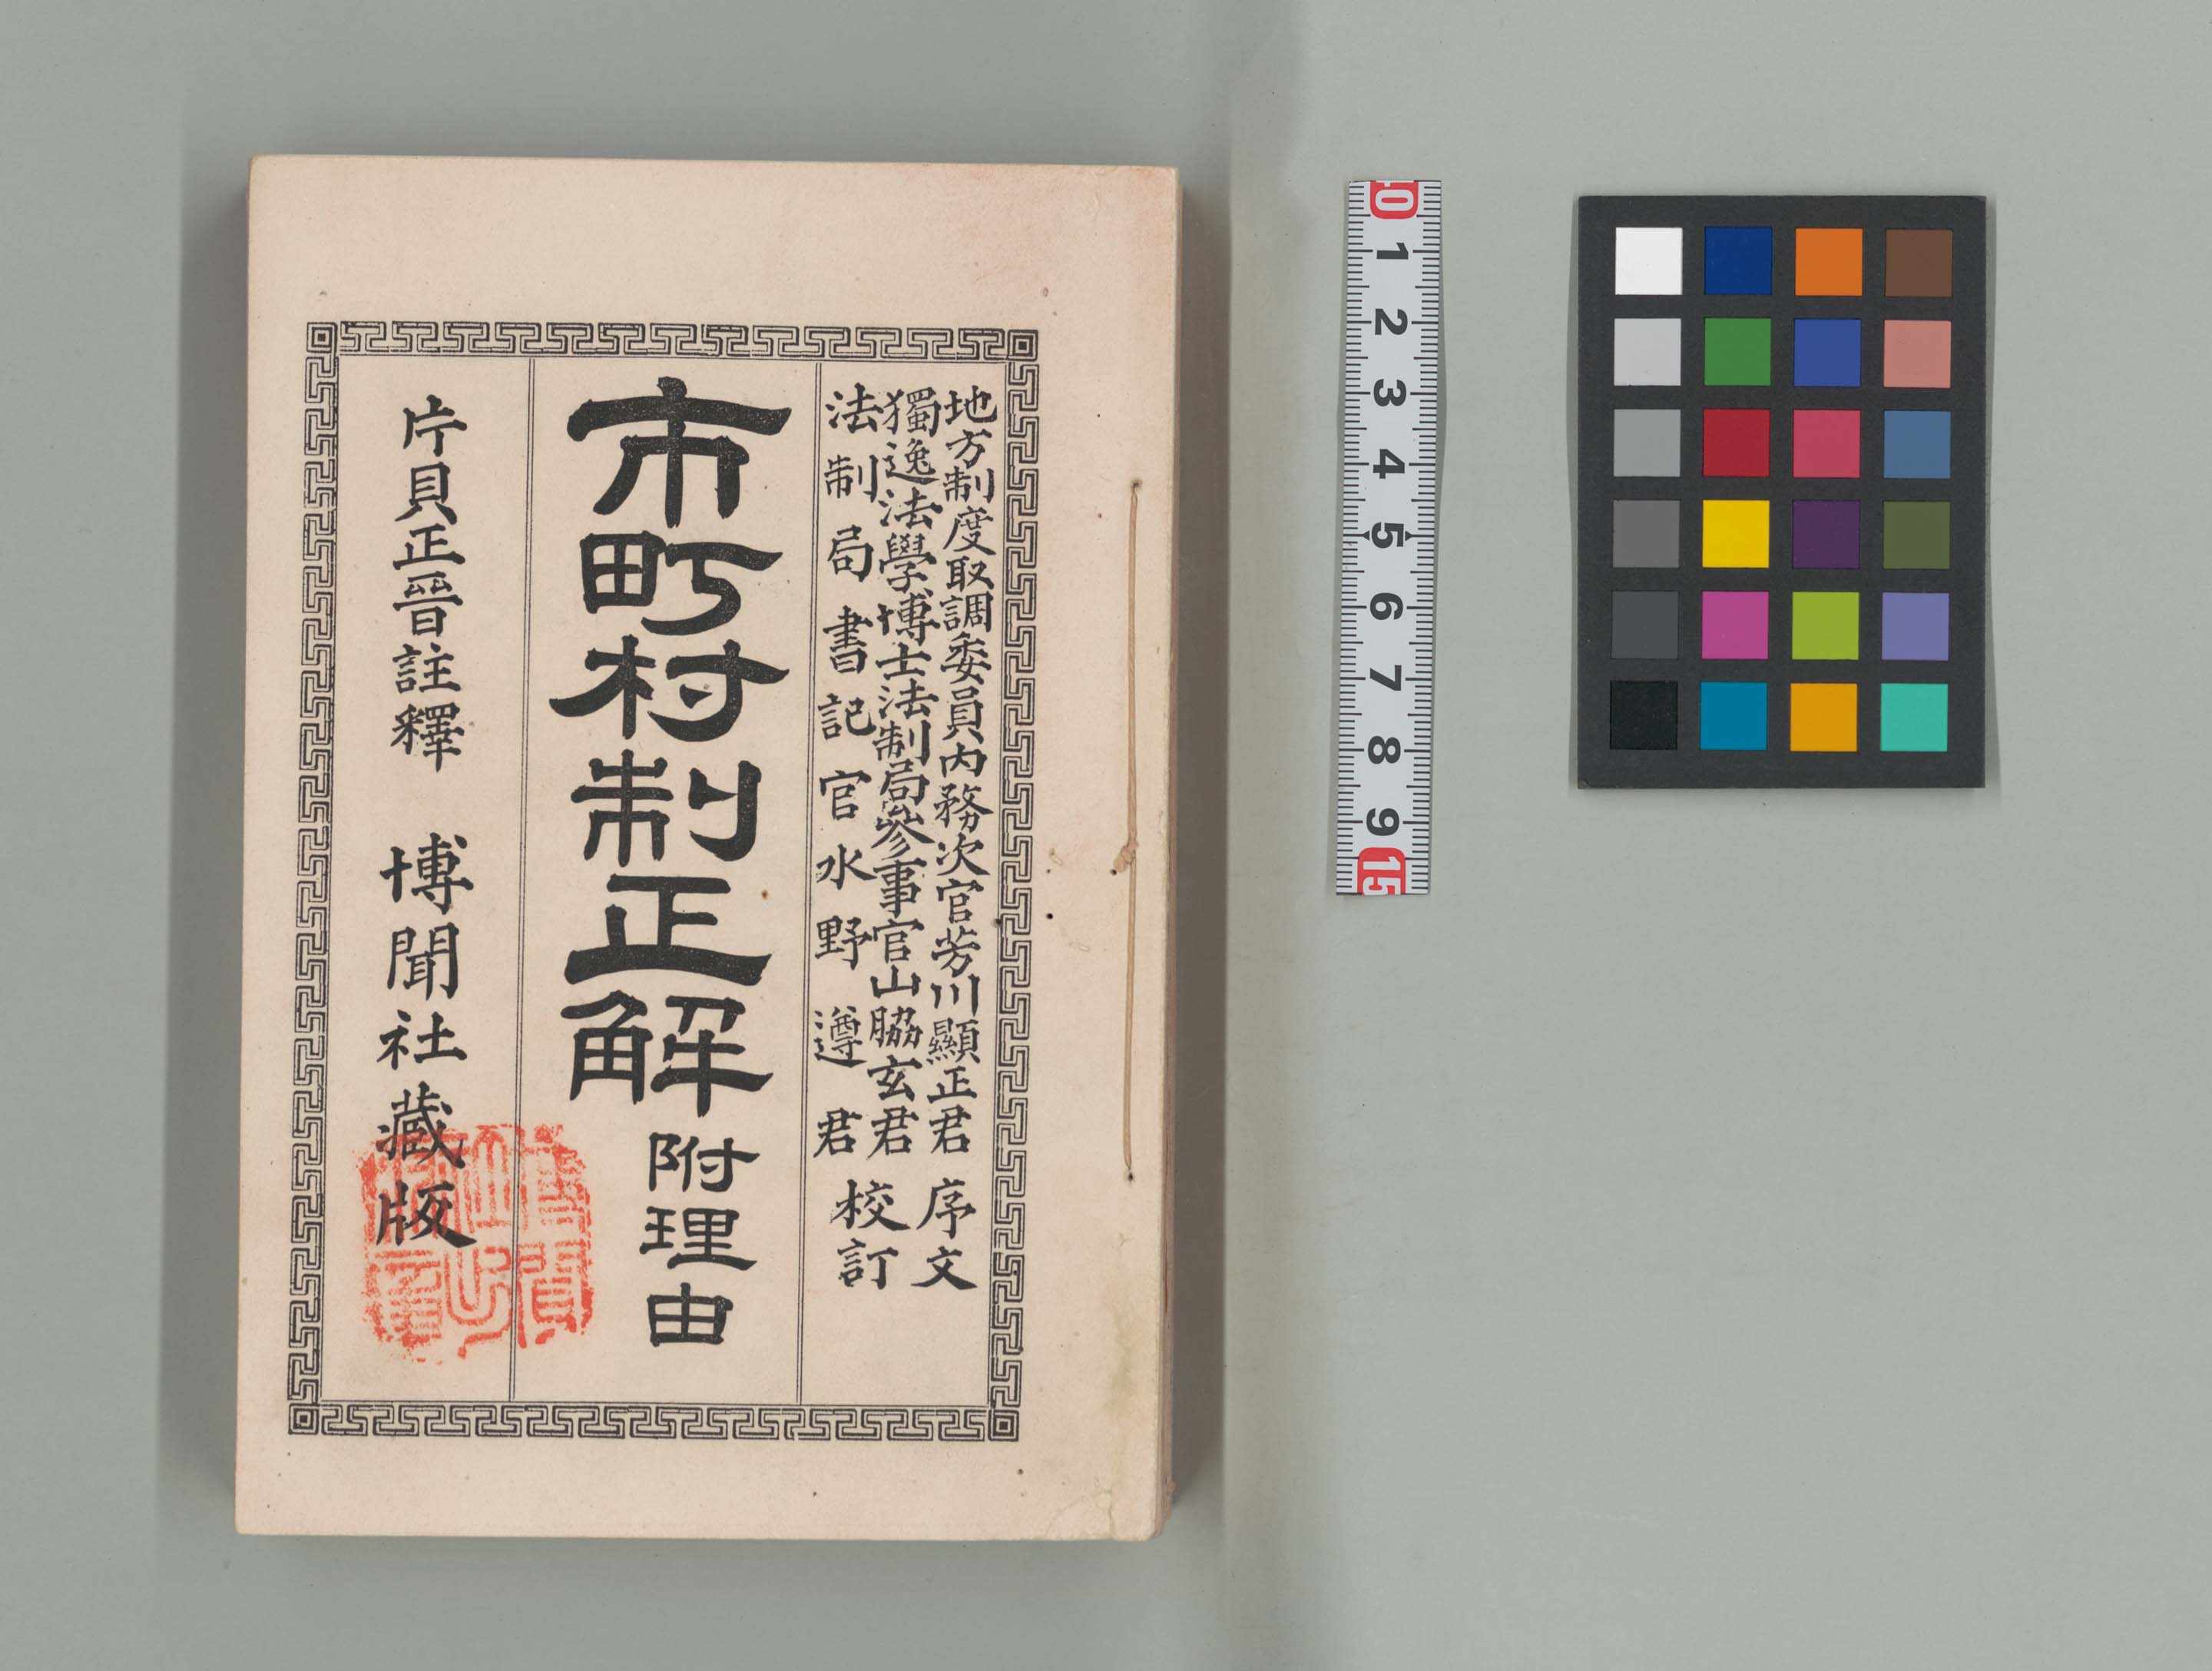 地方制度取調委員内務次官芳川顯正君 序文
獨逸法學博士法制局參事官山脇玄君
法制局書記官水野遵君 校訂
市町村制正解 附理由
片貝正晉註釋 博聞社藏版
10
1
2
3
4
5
6
7
8
9
15